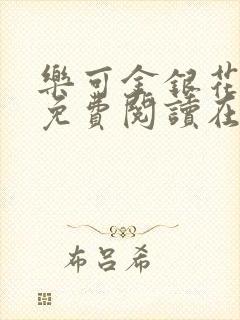 樂可金銀花
免費閱讀在
布呂希